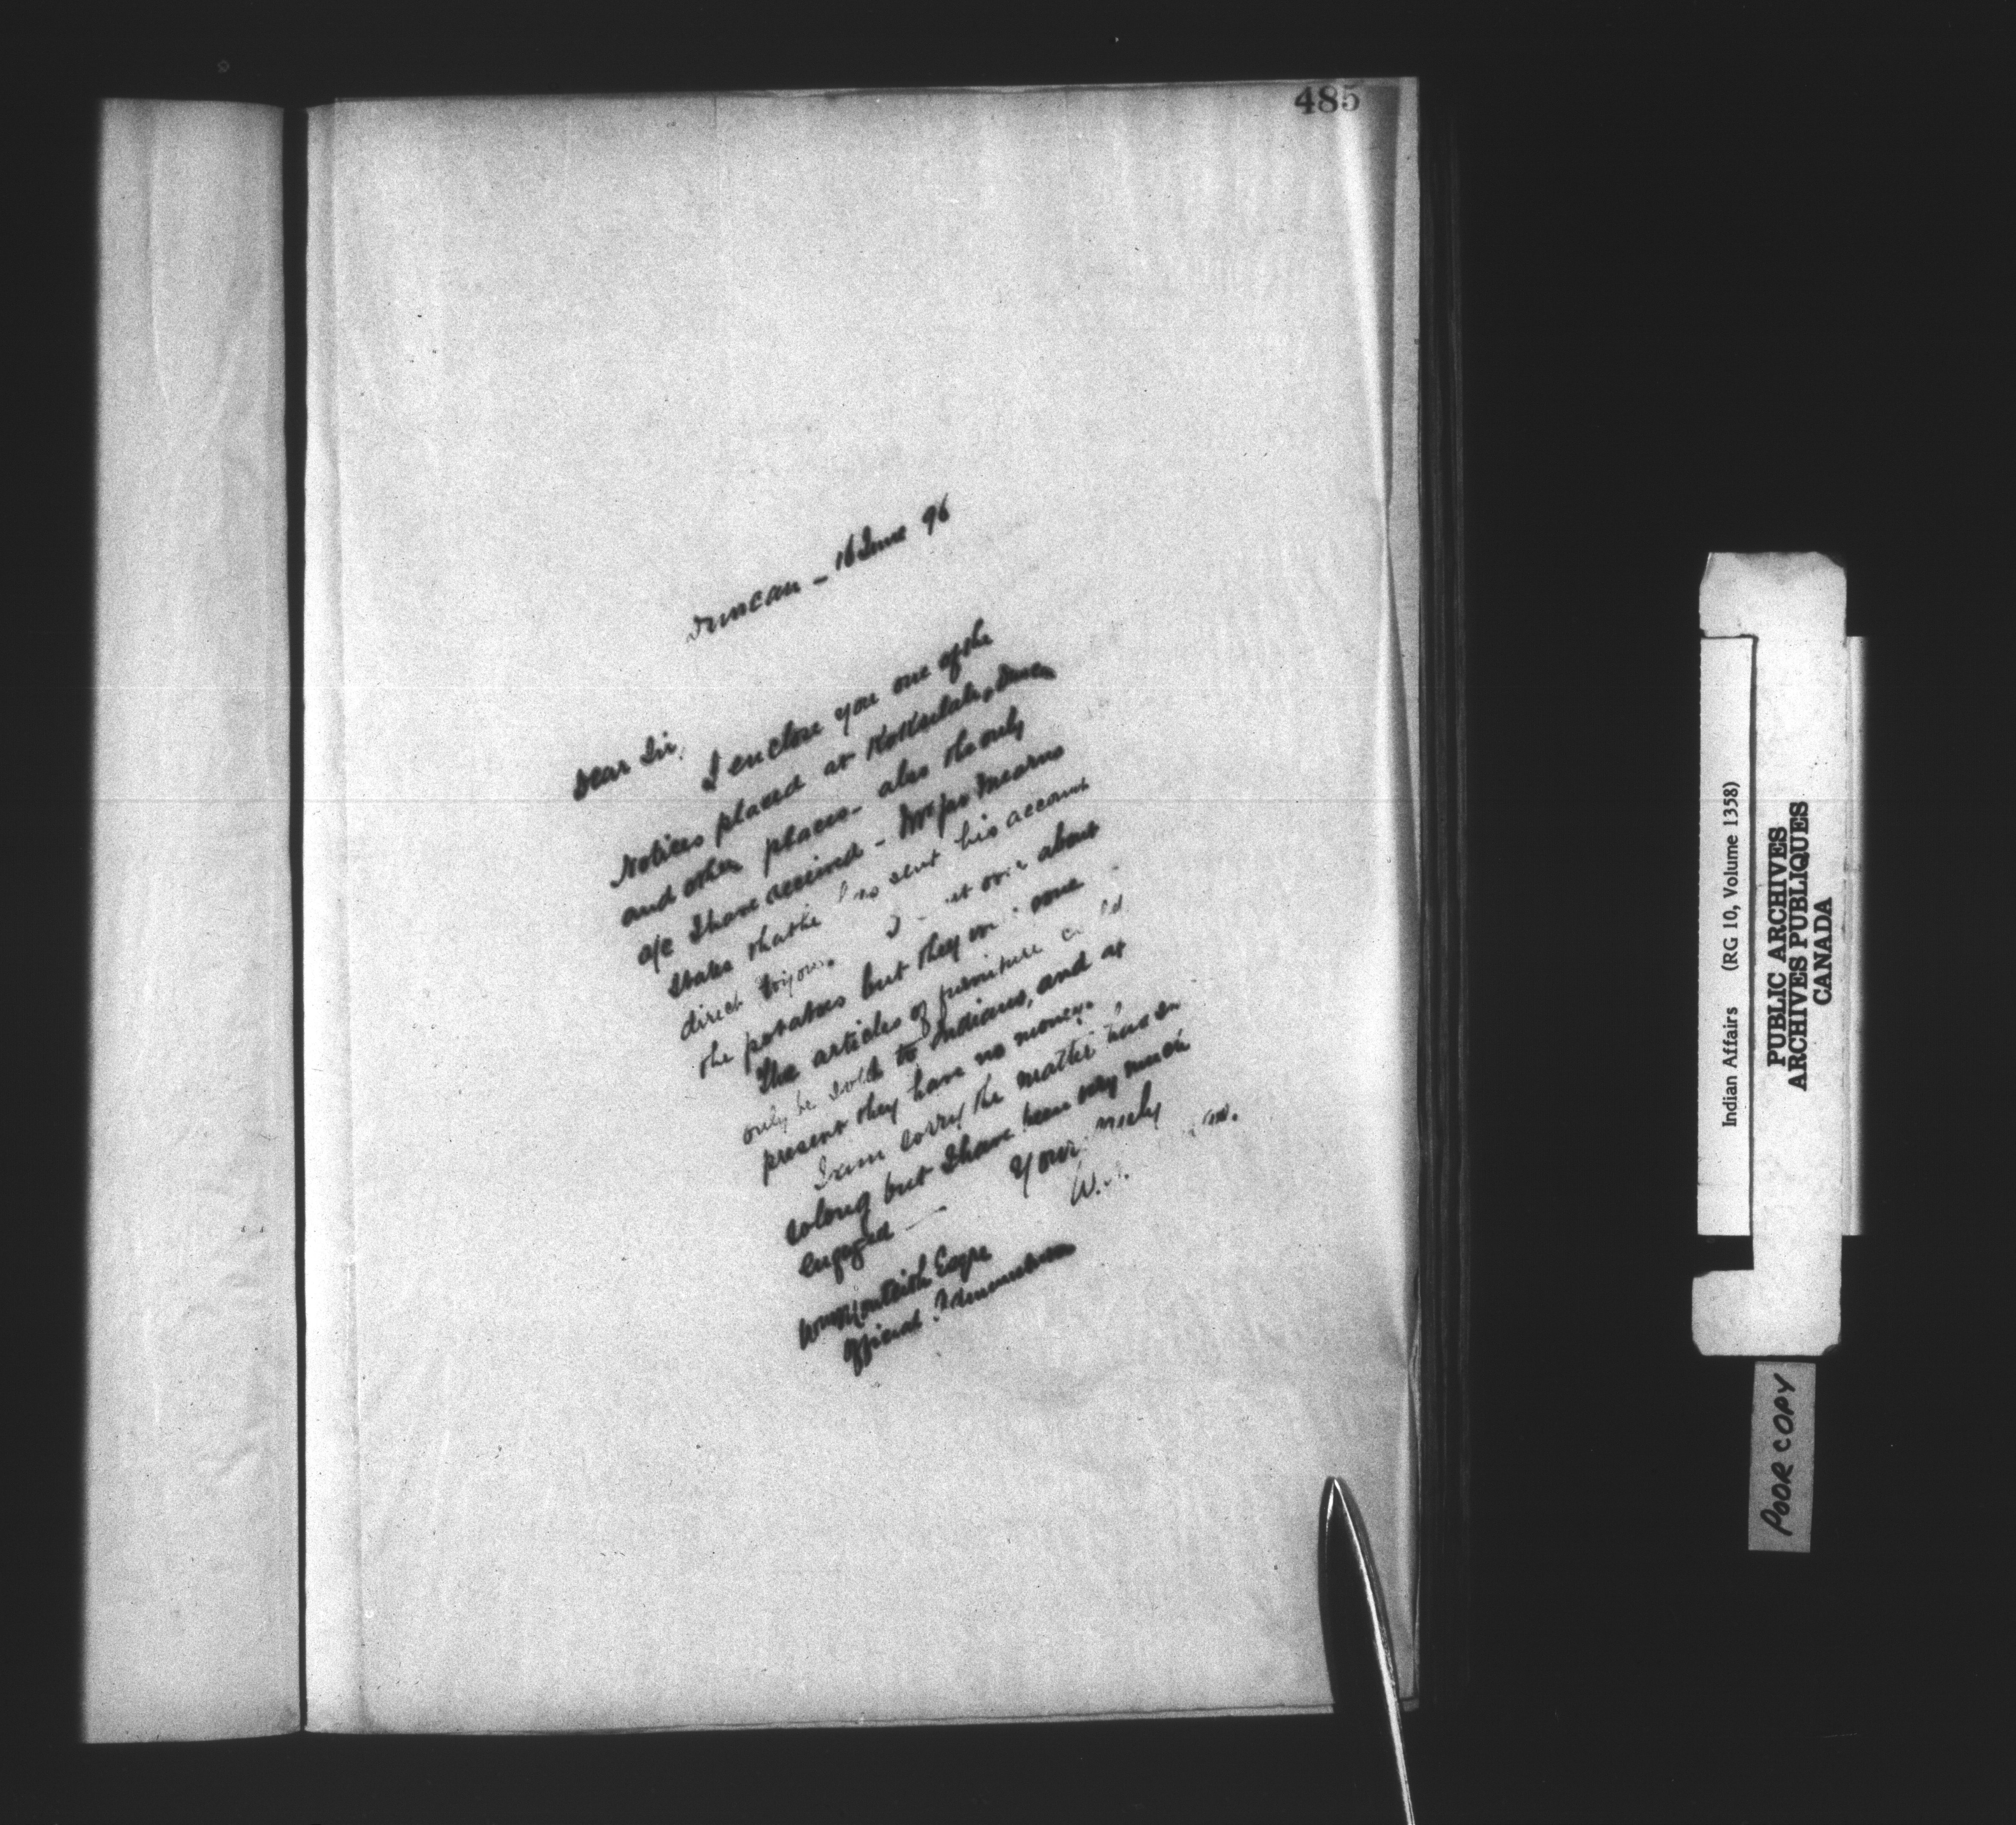 485
Duncan – 16 June 96
Dear Sir.
I enclose you one of the
Notices placed at Kokesilah, Duncan
and other places – also the only
a/c I have received – Mearns
states that he has sent his account
direct to you. I over about
the potatoes but they were none
The articles of furniture could
only be sold to Indians, and at
present they have no money.
I am sorry the matter has been
so long but I have been very much
engaged —
Yours truly
W.
Wm Monteith Esqre
Official Administrator
Indian Affairs (RG 10, Volume 1358)
PUBLIC ARCHIVES
ARCHIVES PUBLIQUES
CANADA
POOR COPY